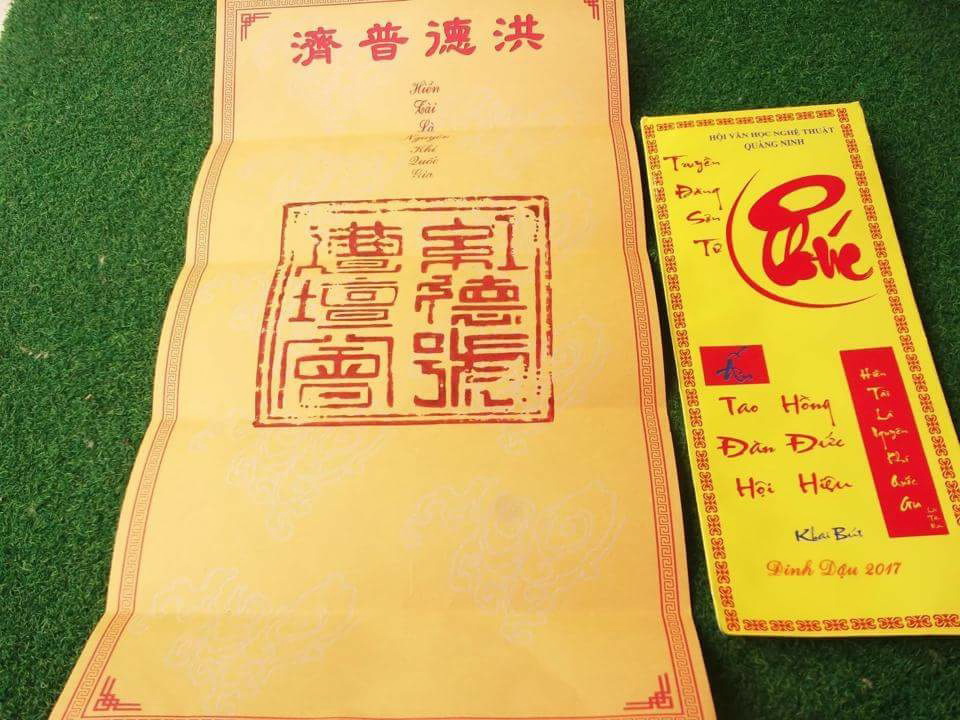 洪德普濟
Hiền
Tài
Là
Nguyên
Khí
Quốc
Gia
德號
壇會
HỘI VĂN HỌC NGHỆ THUẬT
QUẢNG NINH
Truyền
Đăng
Sơn
Tự
Tao Hồng
Đàn Đức
Hội Hiệu
Hiền
Tài
Là
Nguyên
Khí
Quốc
Gia
Khai Bút
Đinh Dậu 2017